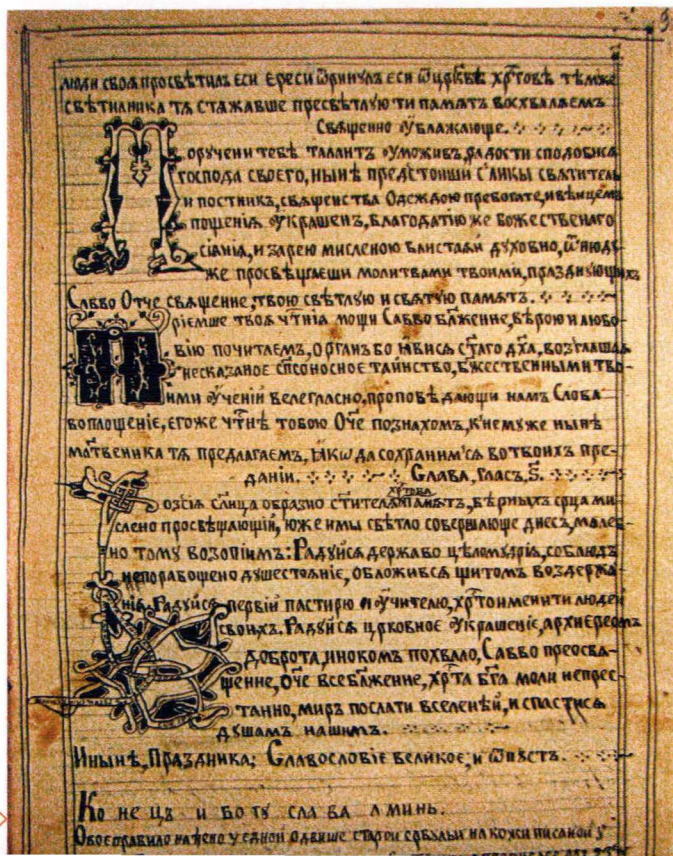 люди своѧ просвѣтилъ еси ереси ѿринулъ еси ѿ црквѣ хртовѣ тѣмже
свѣтилника тѧ стѧжавше пресвѣтлую ти памѧть восхвалѧемъ
Свѧщенно ꙋблажающе.
Порꙋчени тебѣ таллитъ ꙋможивъ, радости сподобисѧ
господа своего, нынѣ предстоиши с лики свѧтитель
и постникъ, свѧщенства Одеждою пребогате, и вѣнцемъ
пощениѧ ꙋкрашен, благодатию же божественаго
сіѧніѧ, и зарею мисленою блистаѧй духовно, ѿнюдꙋ
же просвѣщаеши молитвами твоими, празднꙋющихъ
Савво Отче свѧщенне, твою свѣтлꙋю и свѧтꙋю памѧть.
Приемше твоѧ чтніѧ мощи Савво блженне, вѣрою и любо-
вію почитаемъ, Органъ бо ꙗвисѧ стаго дха, возглашаѧ
несказаное спсоносное таинство, бжественными тво-
ими ꙋченій велегласно, проповѣдающи намъ Слова
воплощеніе, егоже чтнѣ тобою Оче познахомъ, к немуже нынѣ
мотвеника тѧ предлагаемъ, ꙗкѡ да сохранимсѧ во твоихъ пре-
даніи. Слава, гласъ, ѕ.
хртова
озсіѧ слнца образно стителѧ памѧт, вѣрныхъ срца ми-
слено просвѣщающій, юже имы свѣтло совершающе днесъ, молеб-
но тому возопіимъ: Радуйсѧ державо цѣломудріѧ, соблюдъ
непорабощено душестоѧніе, обложивсѧ щитомъ воздержа-
ніѧ. Радꙋйсѧ первій пастирю и ꙋчителю, хртоименити людей
своихъ. Радꙋйсѧ црковное ꙋкрашеніе, архиереомъ
доброта, иноком похвало, Савво преосвѧ-
щенне, Оче всеблженне, хрта бга моли непрес-
танно, миръ послати вселенѣй, и спастисѧ
душамъ нашимъ.
И нынѣ, Праздника; Славословіе великое; и ѿпꙋстъ.
Ко не цъ и бо гу сла ва а минь.
Обое правило наѣено у единой одвише старой србулѣи на кожи писаной у